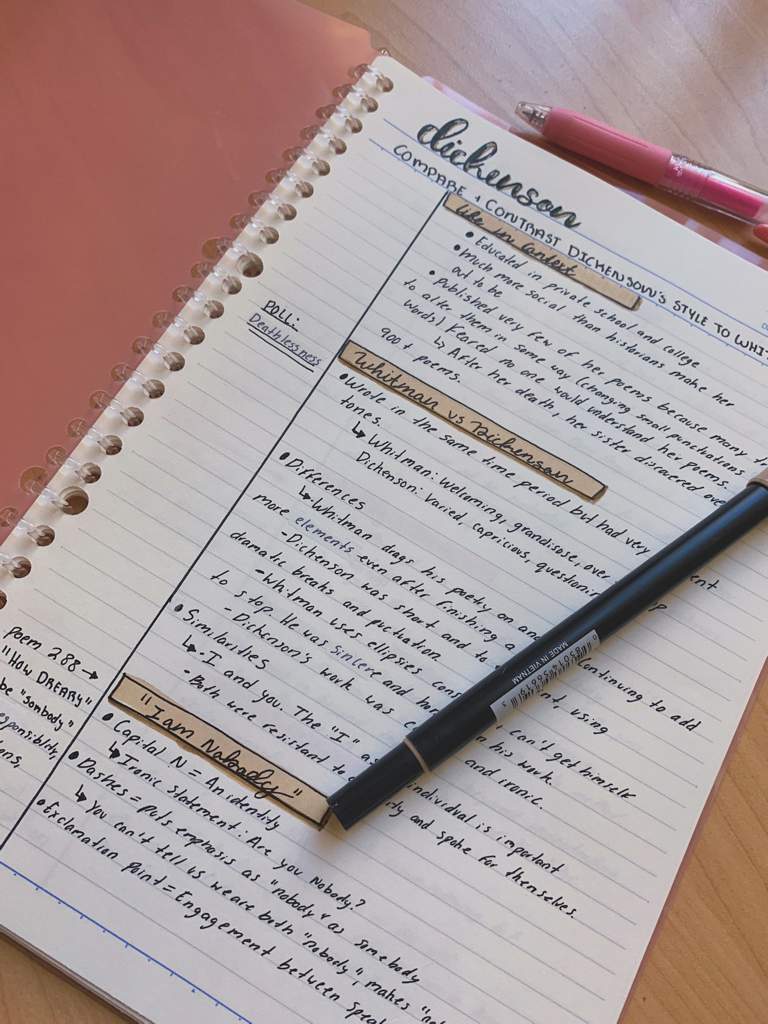 dickenson
COMPARE + CONTRAST DICKENSON'S STYLE TO WHIT
Life in Context
• Educated in private school and college
• Much more social than historians make her
out to be
• Published very few of her poems because many
to alter them in some way (changing small punctuations
words) Feared no one would understand her poems.
↳ After her death, her sister discovered over
900+ poems.
POLL:
Deathlessness
Whitman vs Dickenson
• Wrote in the same time period but had very
tones.
↳ Whitman: Welcoming, grandiose, over
Dickenson: Varied, capricious, questionin
• Differences
↳ Whitman drags his poetry on and continuing to add
more elements even after finishing a
- Dickenson was short and to using
dramatic breaks and puctuation.
- Whitman uses ellipsies can't get himself
to stop. He was sincere and his work.
- Dickenson's work was and ironic.
• Similarities
↳ I and you. The "I" as individual is important
- Both were resistant to and spoke for themselves.
poem 288 →
"HOW DREARY"
be "sombody"
responsibility,
"I am Nobody"
• Capital N = An identity
↳ Ironic statement: Are you Nobody?
• Dashes = puts emphasis as "nobody & as somebody
↳ You can't tell us we are both "nobody", makes
• Exclamation point = Engagement between
MADE IN VIETNAM